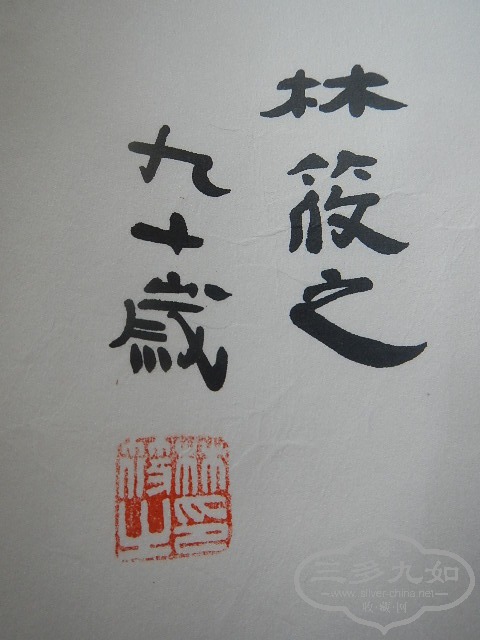 林筱之
九十歲
林筱之印
三多九如
www.silver-china.net
收藏网